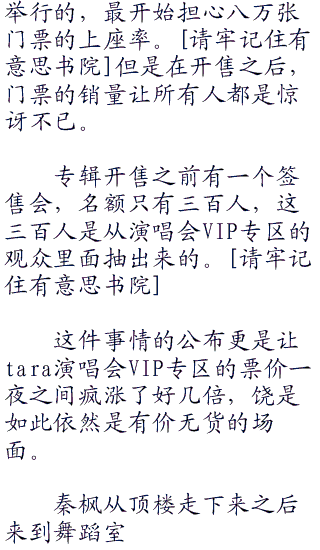 举行的，最开始担心八万张
门票的上座率。[请牢记住有
意思书院]但是在开售之后，
门票的销量让所有人都是惊
讶不已。
专辑开售之前有一个签
售会，名额只有三百人，这
三百人是从演唱会VIP专区的
观众里面抽出来的。[请牢记
住有意思书院]
这件事情的公布更是让
tara演唱会VIP专区的票价一
夜之间疯涨了好几倍，饶是
如此依然是有价无货的场
面。
秦枫从顶楼走下来之后
来到舞蹈室